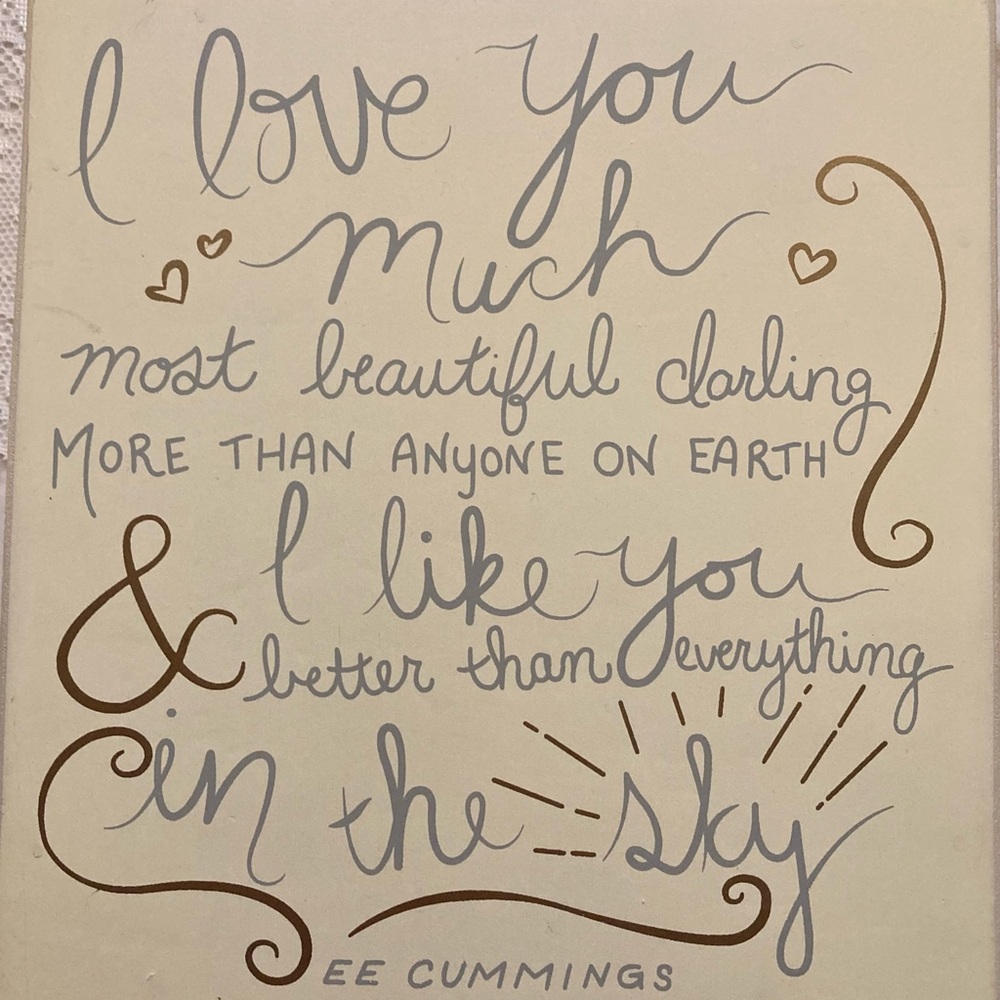 I love you
much
most beautiful darling
MORE THAN ANYONE ON EARTH
& I like you
better than everything
in the sky
EE CUMMINGS